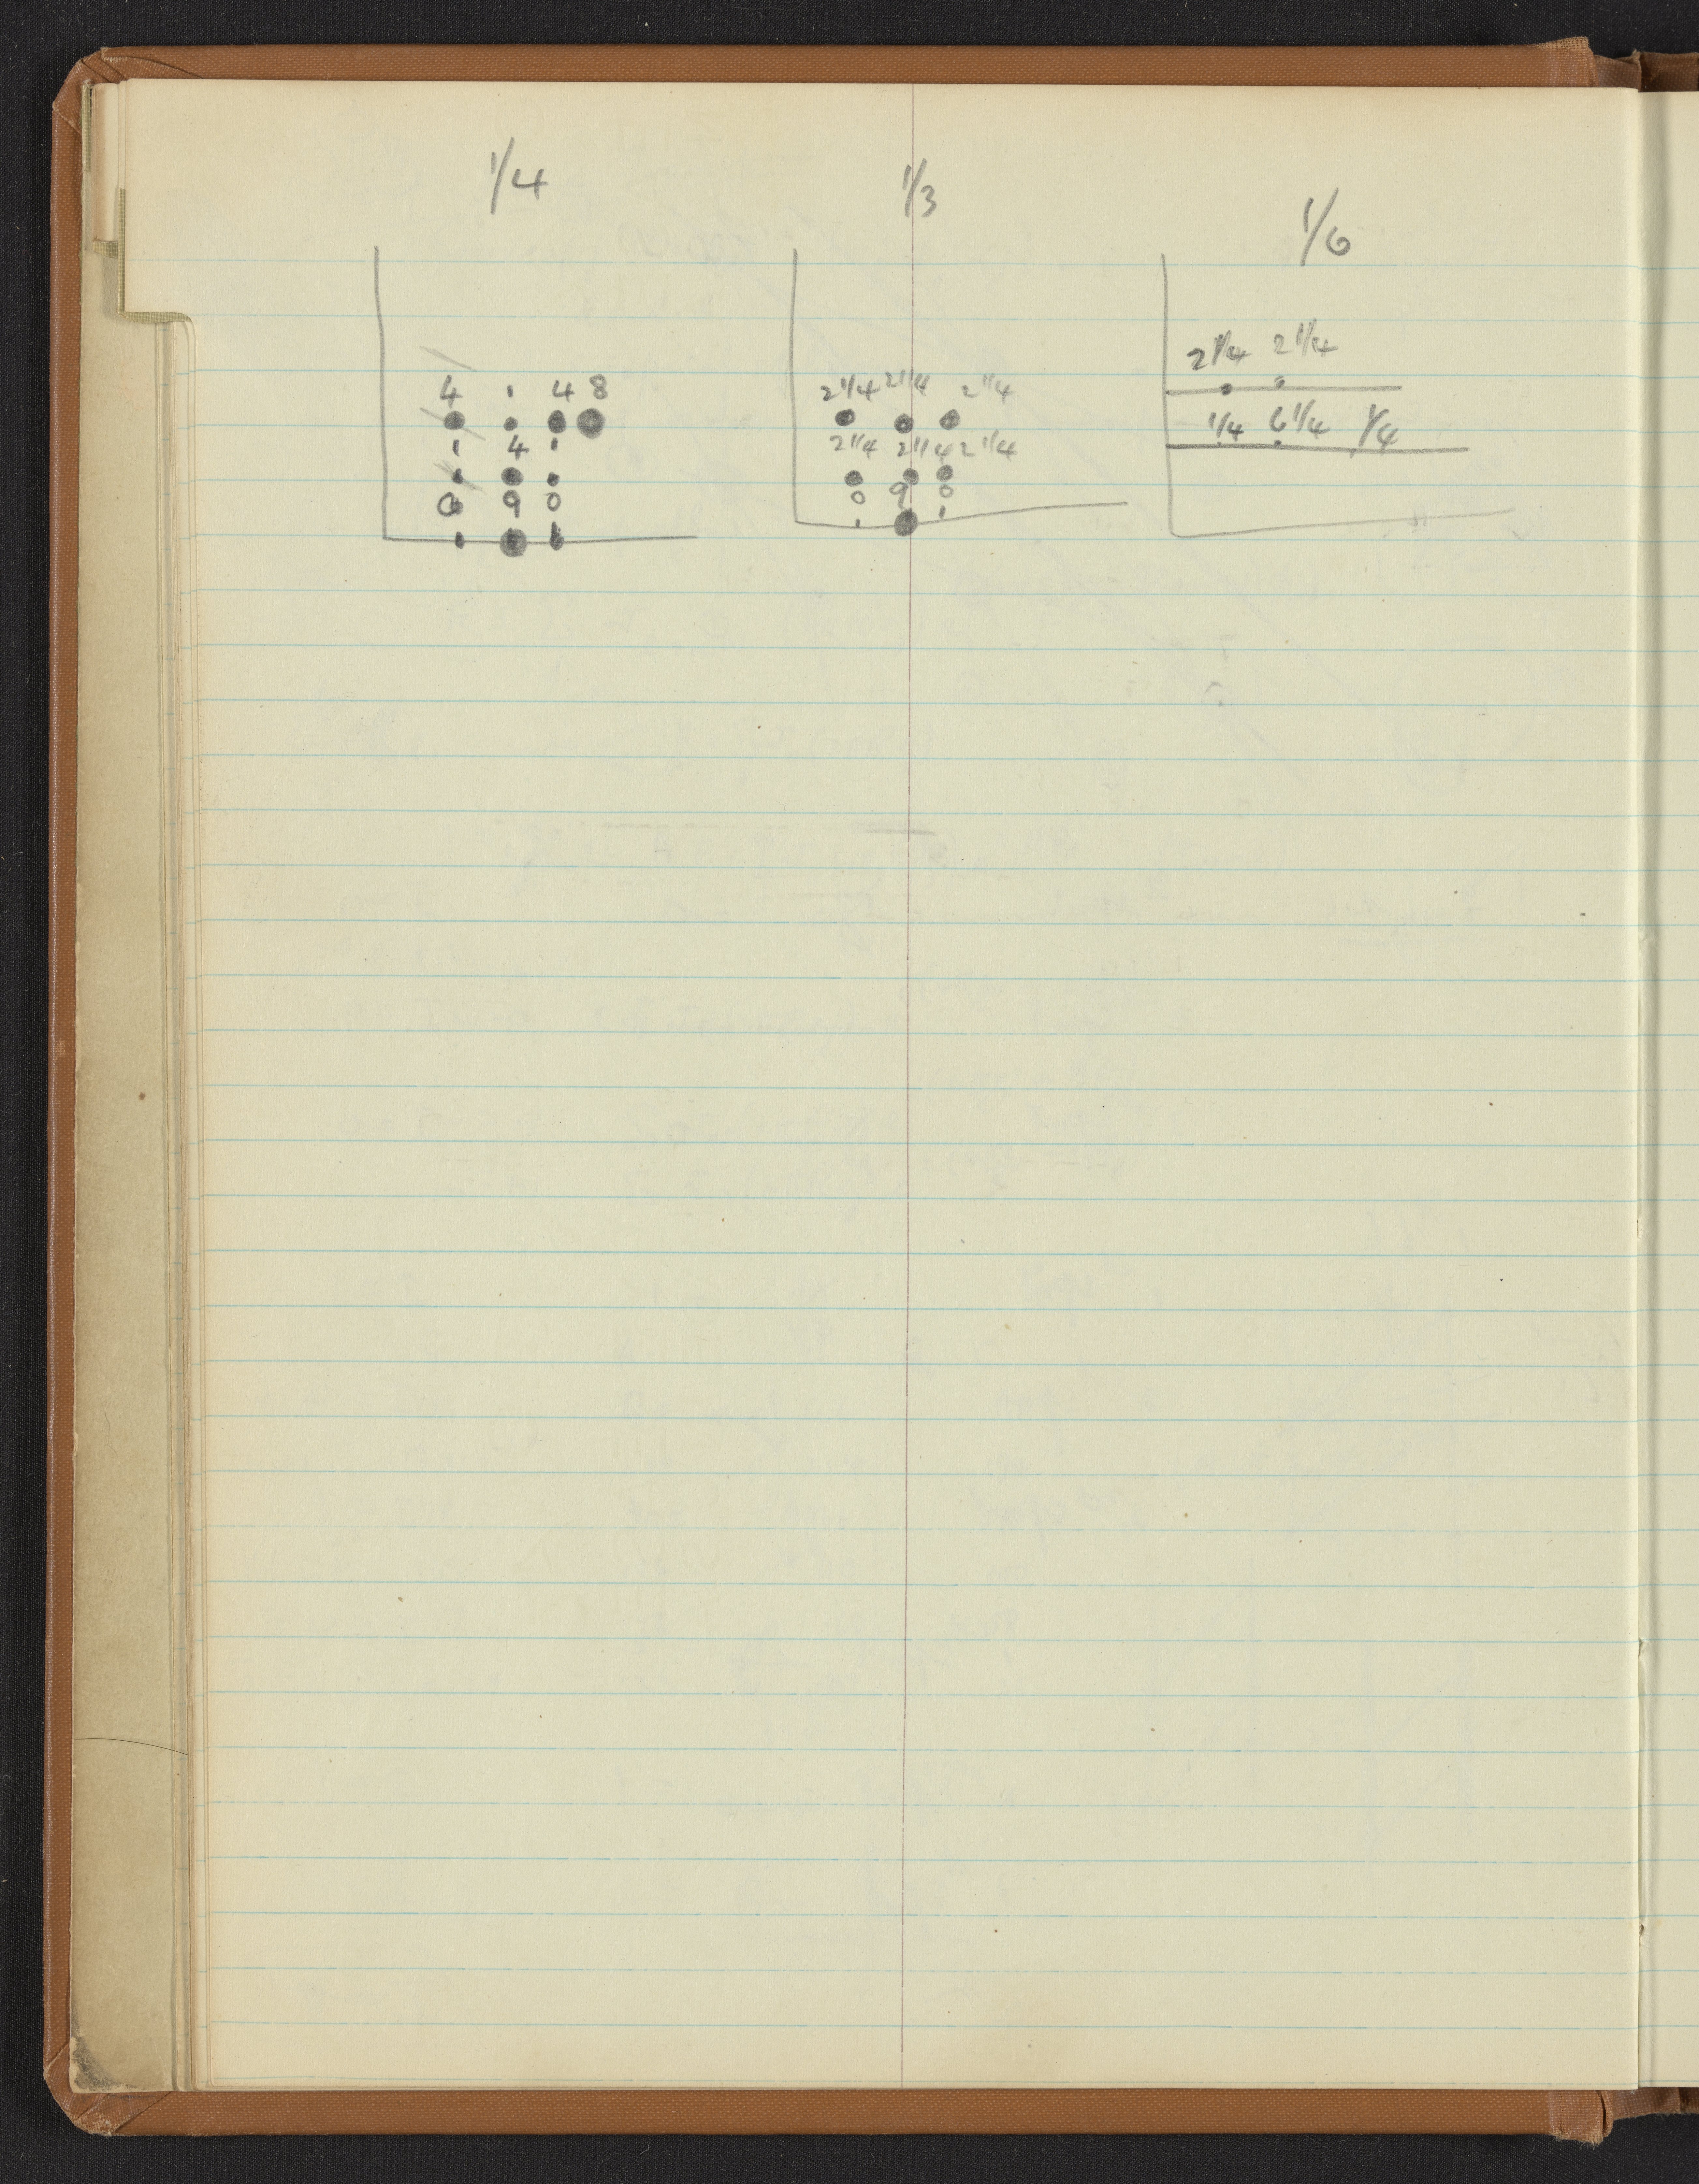 1/4
4 1 4 8
1 4 1
0 9 0
1/3
2 1/4 2 1/4 2 1/4
2 1/4 2 1/4 2 1/4
0 9 0
1/6
2 1/4 2 1/4
1/4 6 1/4 1/4